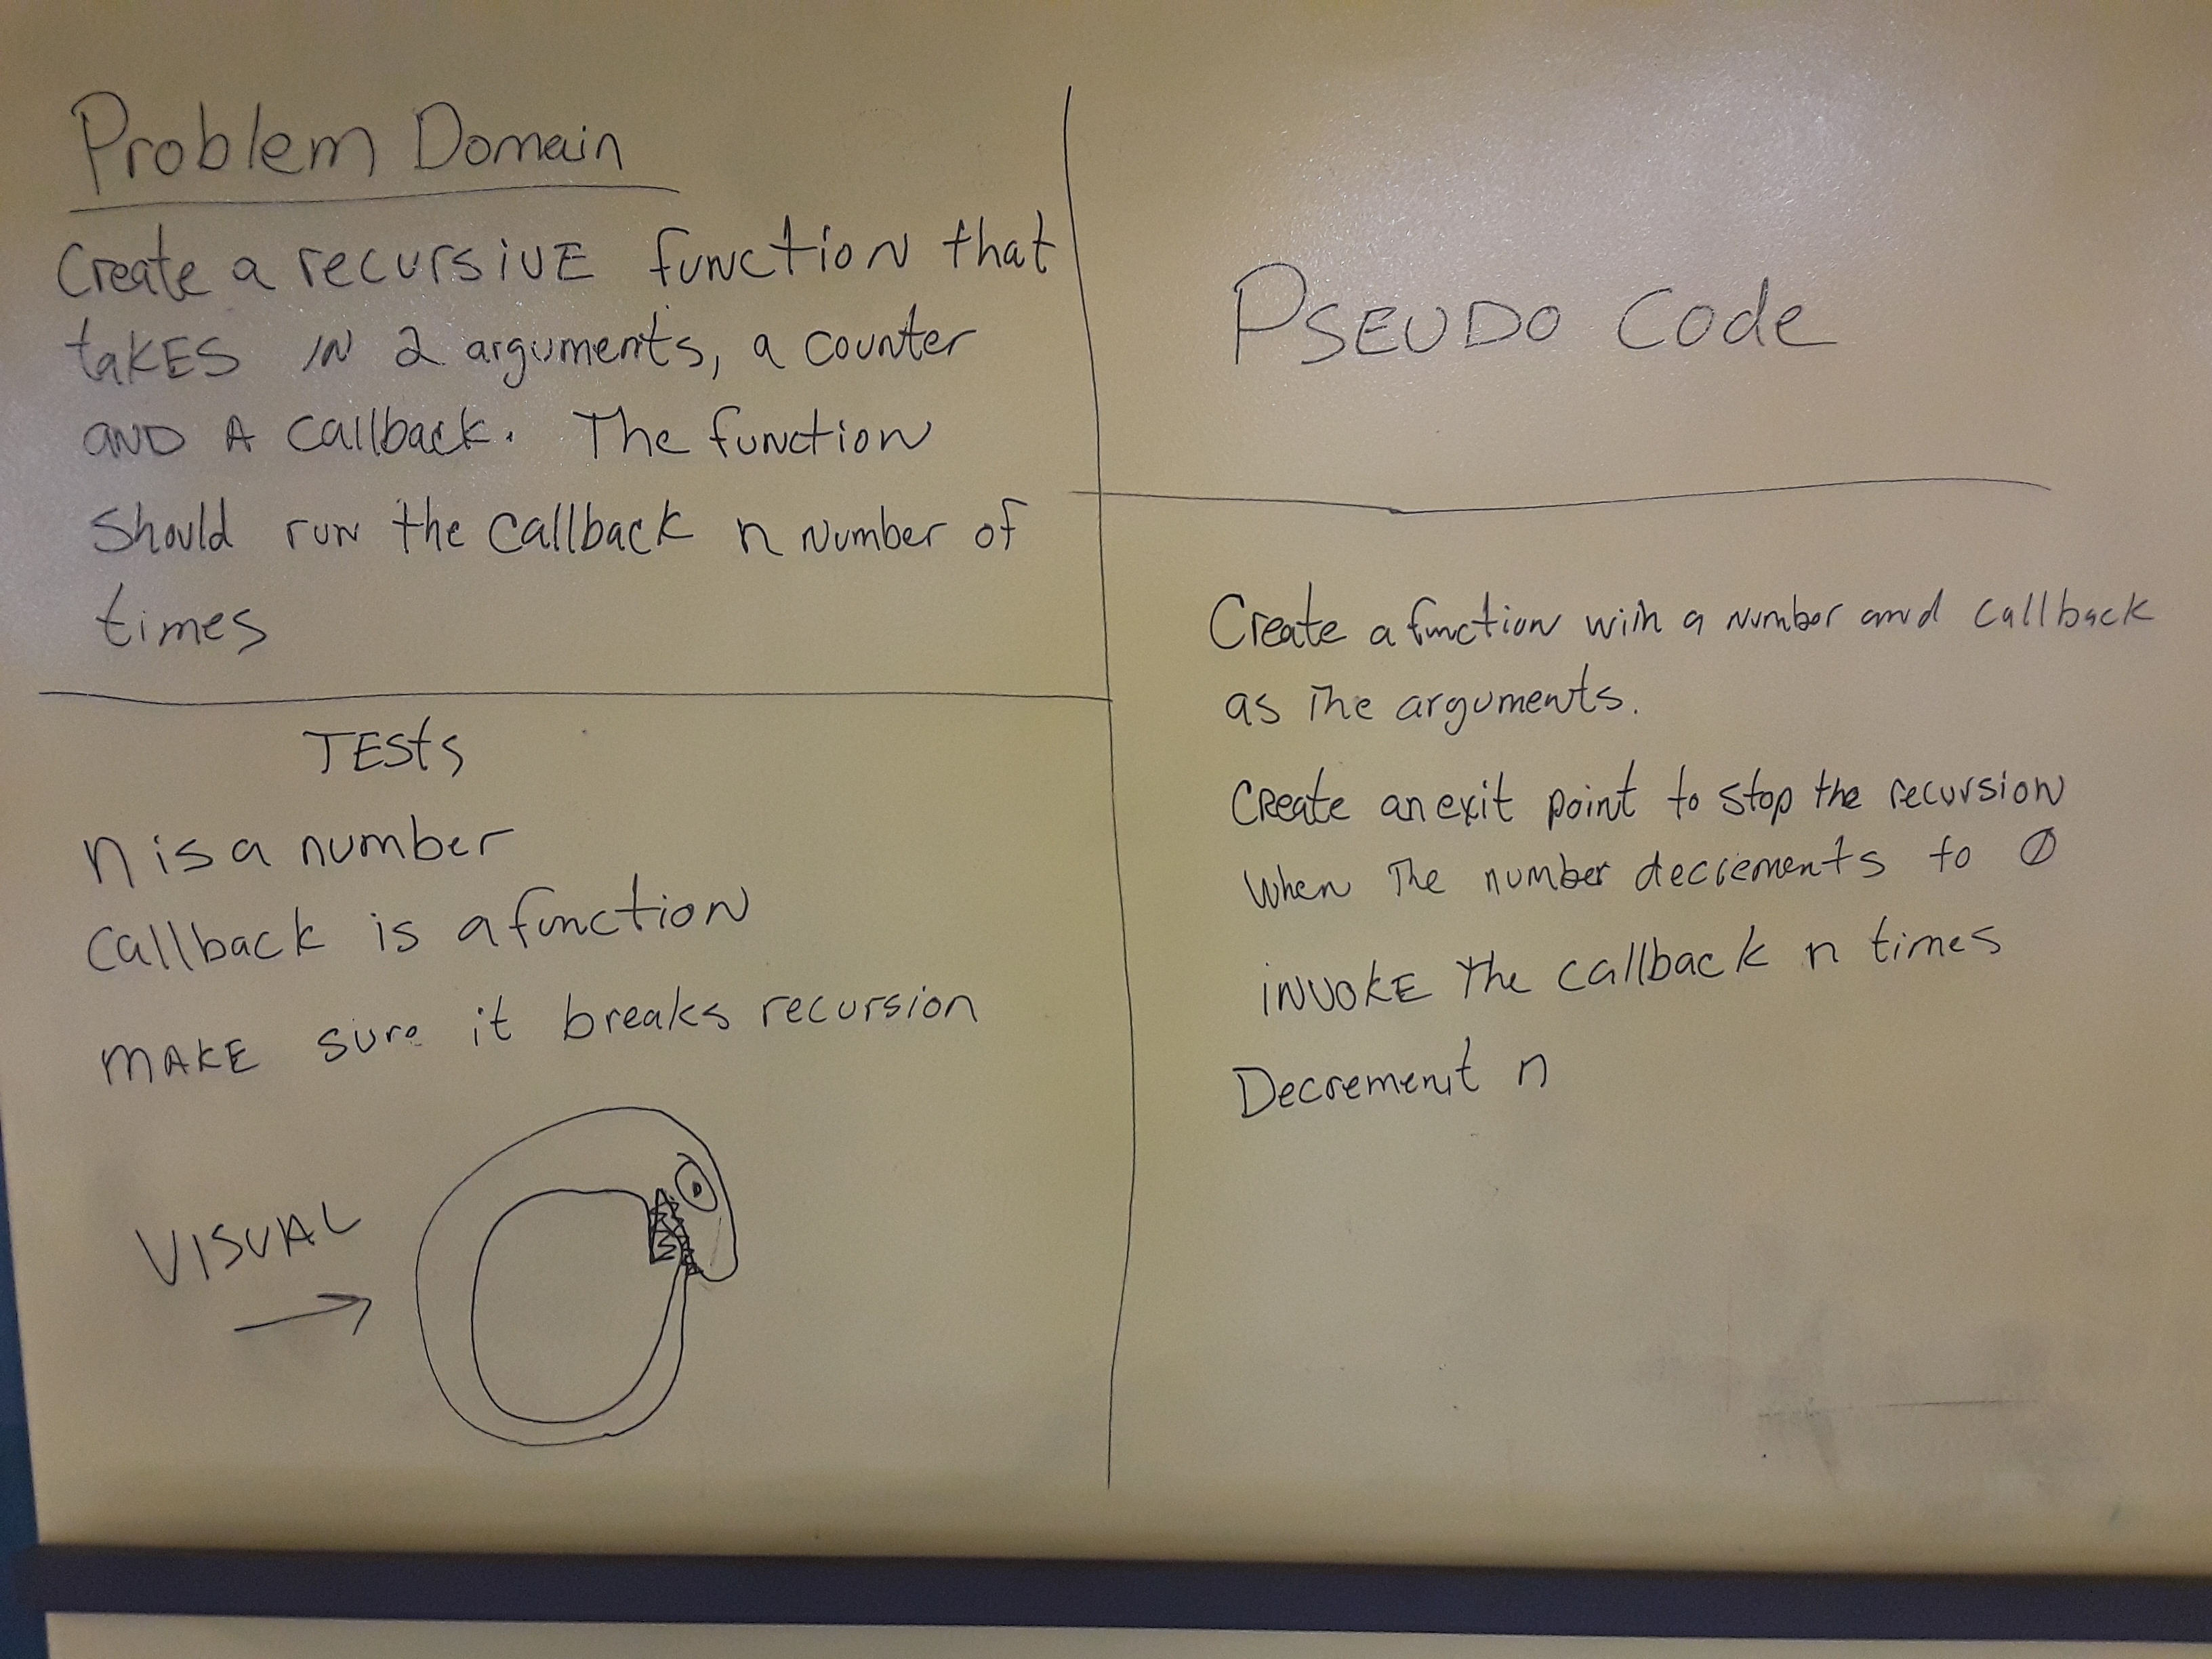 Problem Domain
Create a recursiVE function that
takES iN 2 arguments, a counter
aND A callback. The function
Should ruN the callback n Number of
times
TESTs
n is a number
Callback is a function
MAKE sure it breaks recursion
VISUAL
PSEUDO Code
Create a function with a Number and callback
as The arguments.
Create an exit point to stop the recursion
When The number decrements to 0
iNVOKE The callback n times
Decrement n